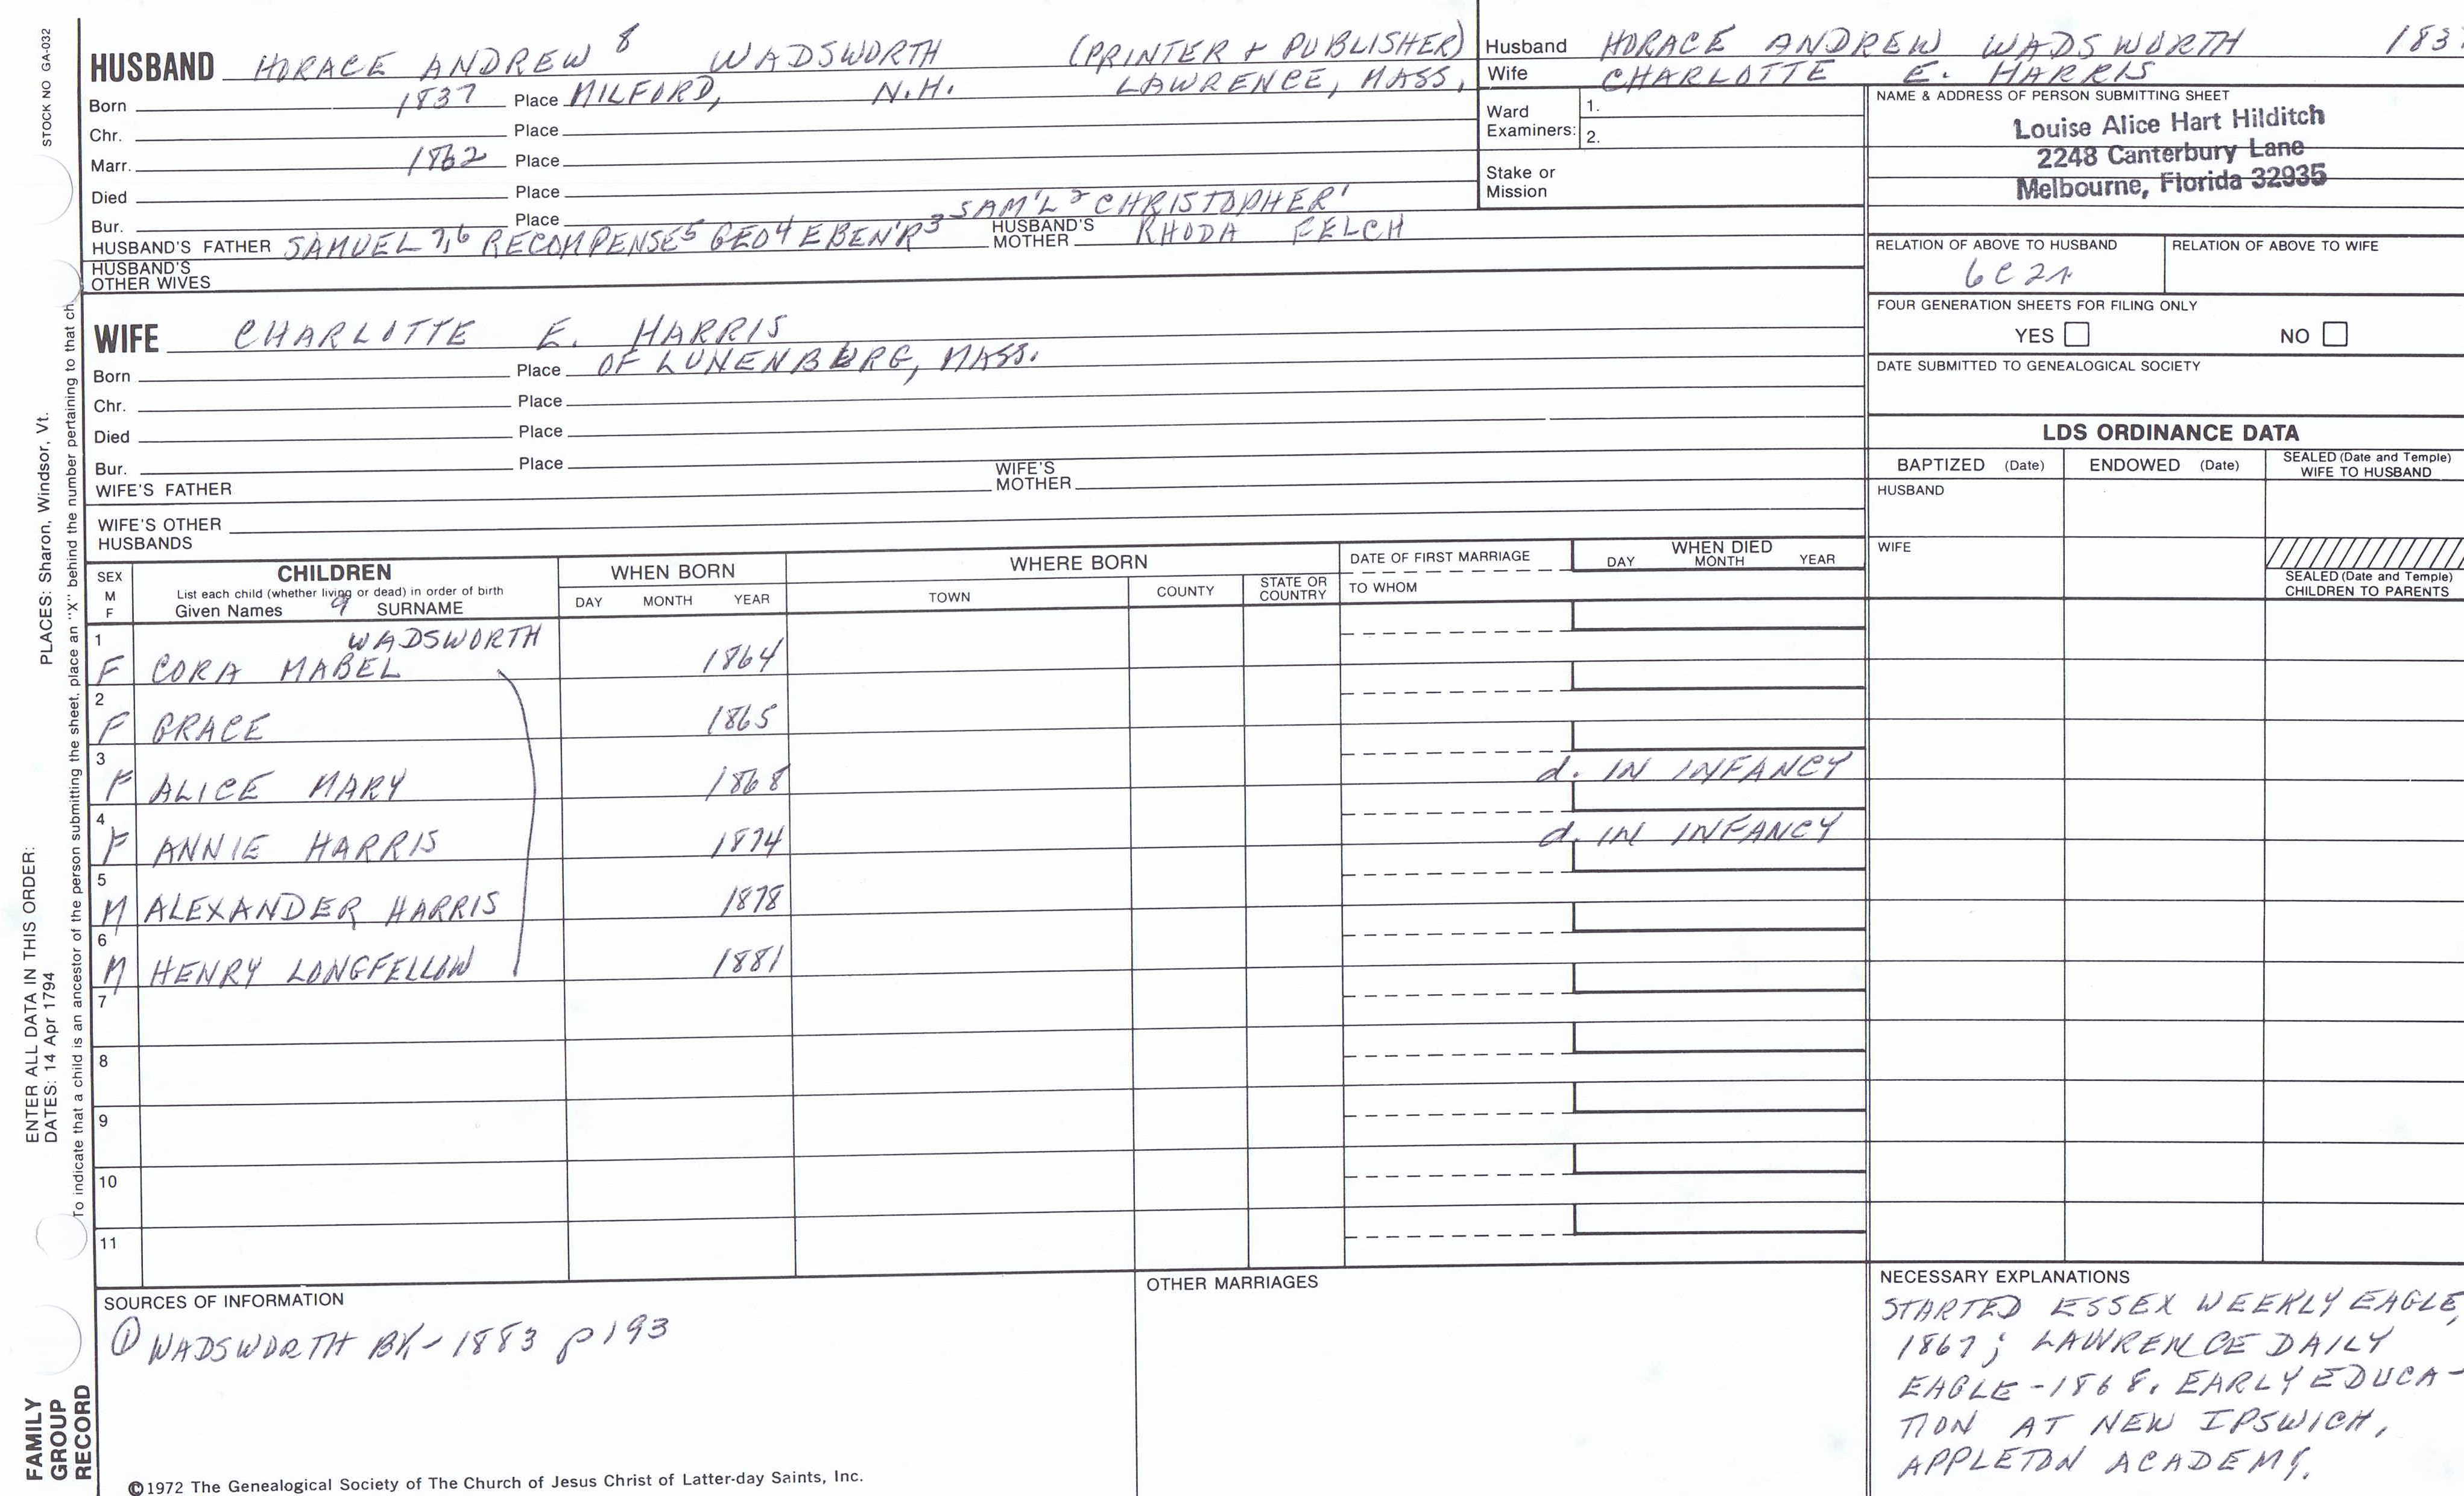 STOCK NO GA-032
PLACES: Sharon, Windsor, Vt.
ENTER ALL DATA IN THIS ORDER:
DATES: 14 Apr 1794
To indicate that a child is an ancestor of the person submitting the sheet, place an "X" behind the number pertaining to that ch
FAMILY
GROUP
RECORD
HUSBAND HORACE ANDREW 8 WADSWORTH (PRINTER + PUBLISHER)
Born 1837 Place MILFORD, N.H. LAWRENCE, MASS,
Chr. Place
Marr. 1862 Place
Died Place
Bur. Place
HUSBAND'S FATHER SAMUEL 7,6 RECOMPENSE5 GEO4 EBEN'R3 SAM'L2 CHRISTOPHER' HUSBAND'S MOTHER RHODA FELCH
HUSBAND'S
OTHER WIVES
WIFE CHARLOTTE E. HARRIS
Born Place OF LUNENBURG, MASS.
Chr. Place
Died Place
Bur. Place
WIFE'S FATHER WIFE'S MOTHER
WIFE'S OTHER
HUSBANDS
Husband HORACE ANDREW WADSWORTH
Wife CHARLOTTE E. HARRIS
Ward
Examiners: 1.
2.
Stake or
Mission
NAME & ADDRESS OF PERSON SUBMITTING SHEET
Louise Alice Hart Hilditch
2248 Canterbury Lane
Melbourne, Florida 32935
RELATION OF ABOVE TO HUSBAND RELATION OF ABOVE TO WIFE
6C2r
FOUR GENERATION SHEETS FOR FILING ONLY
YES NO
DATE SUBMITTED TO GENEALOGICAL SOCIETY
LDS ORDINANCE DATA
BAPTIZED (Date) ENDOWED (Date) SEALED (Date and Temple)
WIFE TO HUSBAND
HUSBAND
WIFE
SEALED (Date and Temple)
CHILDREN TO PARENTS
SEX
M
F
CHILDREN
List each child (whether living or dead) in order of birth
Given Names 9 SURNAME
WHEN BORN
DAY MONTH YEAR
WHERE BORN
TOWN COUNTY STATE OR COUNTRY
DATE OF FIRST MARRIAGE
TO WHOM
WHEN DIED
DAY MONTH YEAR
1 WADSWORTH
F CORA MABEL 1864
2
F GRACE 1865
3
F ALICE MARY 1868 d. IN INFANCY
4
F ANNIE HARRIS 1874 d. IN INFANCY
5
M ALEXANDER HARRIS 1878
6
M HENRY LONGFELLOW 1881
7
8
9
10
11
SOURCES OF INFORMATION
① WADSWORTH BK - 1883 p 193
OTHER MARRIAGES
NECESSARY EXPLANATIONS
STARTED ESSEX WEEKLY EAGLE,
1867; LAWRENCE DAILY
EAGLE - 1868. EARLY EDUCA-
TION AT NEW IPSWICH,
APPLETON ACADEMY.
©1972 The Genealogical Society of The Church of Jesus Christ of Latter-day Saints, Inc.